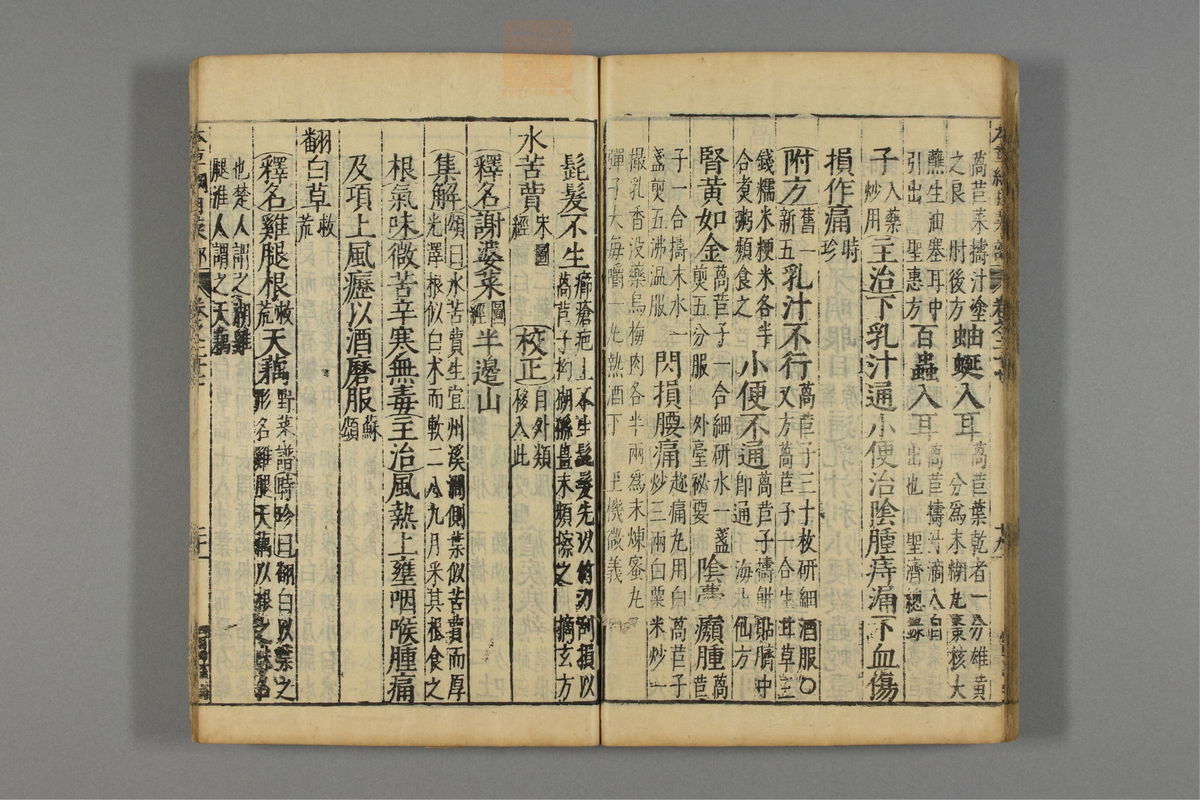 萵苣菜擣汁塗
之良 肘後方
蚰蜒入耳
萵苣葉乾者一分雄黃
一分爲末糊丸棗核大
蘸生油塞耳中
引出 聖惠方
百蟲入耳
萵苣擣汁滴入自
出也 聖濟總錄
子 入藥
炒用
主治下乳汁通小便治陰腫痔漏下血傷
損作痛 時
珍
附方 舊一
新五
乳汁不行
萵苣子三十枚研細酒服○
又方萵苣子一合生甘草三
錢糯米粳米各半
合煮粥頻食之
小便不通
萵苣子擣餅貼臍中
即通 海上仙方
腎黃如金
萵苣子一合細研水一盞
煎五分服 外臺祕要
陰㿗腫
萵苣
子一合擣末水一
盞煎五沸溫服
閃損腰痛
趂痛丸用白萵苣子
炒三兩白粟米炒一
撮乳香没藥烏梅肉各半兩爲末煉蜜丸
彈子大每嚼一丸熱酒下
髭髮不生
癤瘡疤上不生髭髮先以竹刀刮損以
萵苣子拘猢猻薑末頻擦之 摘玄方
水苦蕒
宋圖
經
校正
自外類
移入此
釋名謝婆菜
圖
經
半邊山
集解
頌曰水苦蕒生宜州溪澗側葉似苦蕒而厚
光澤根似白朮而軟二八九月采其根食之
根氣味微苦辛寒無毒主治風熱上壅咽喉腫痛
及項上風癧以酒磨服
蘇
頌
翻白草
救
荒
釋名雞腿根
救
荒
天藕
野菜譜時珍曰翻白以葉之
形名雞腿天藕以根之味名
也楚人謂之湖雞
腿淮人謂之天藕